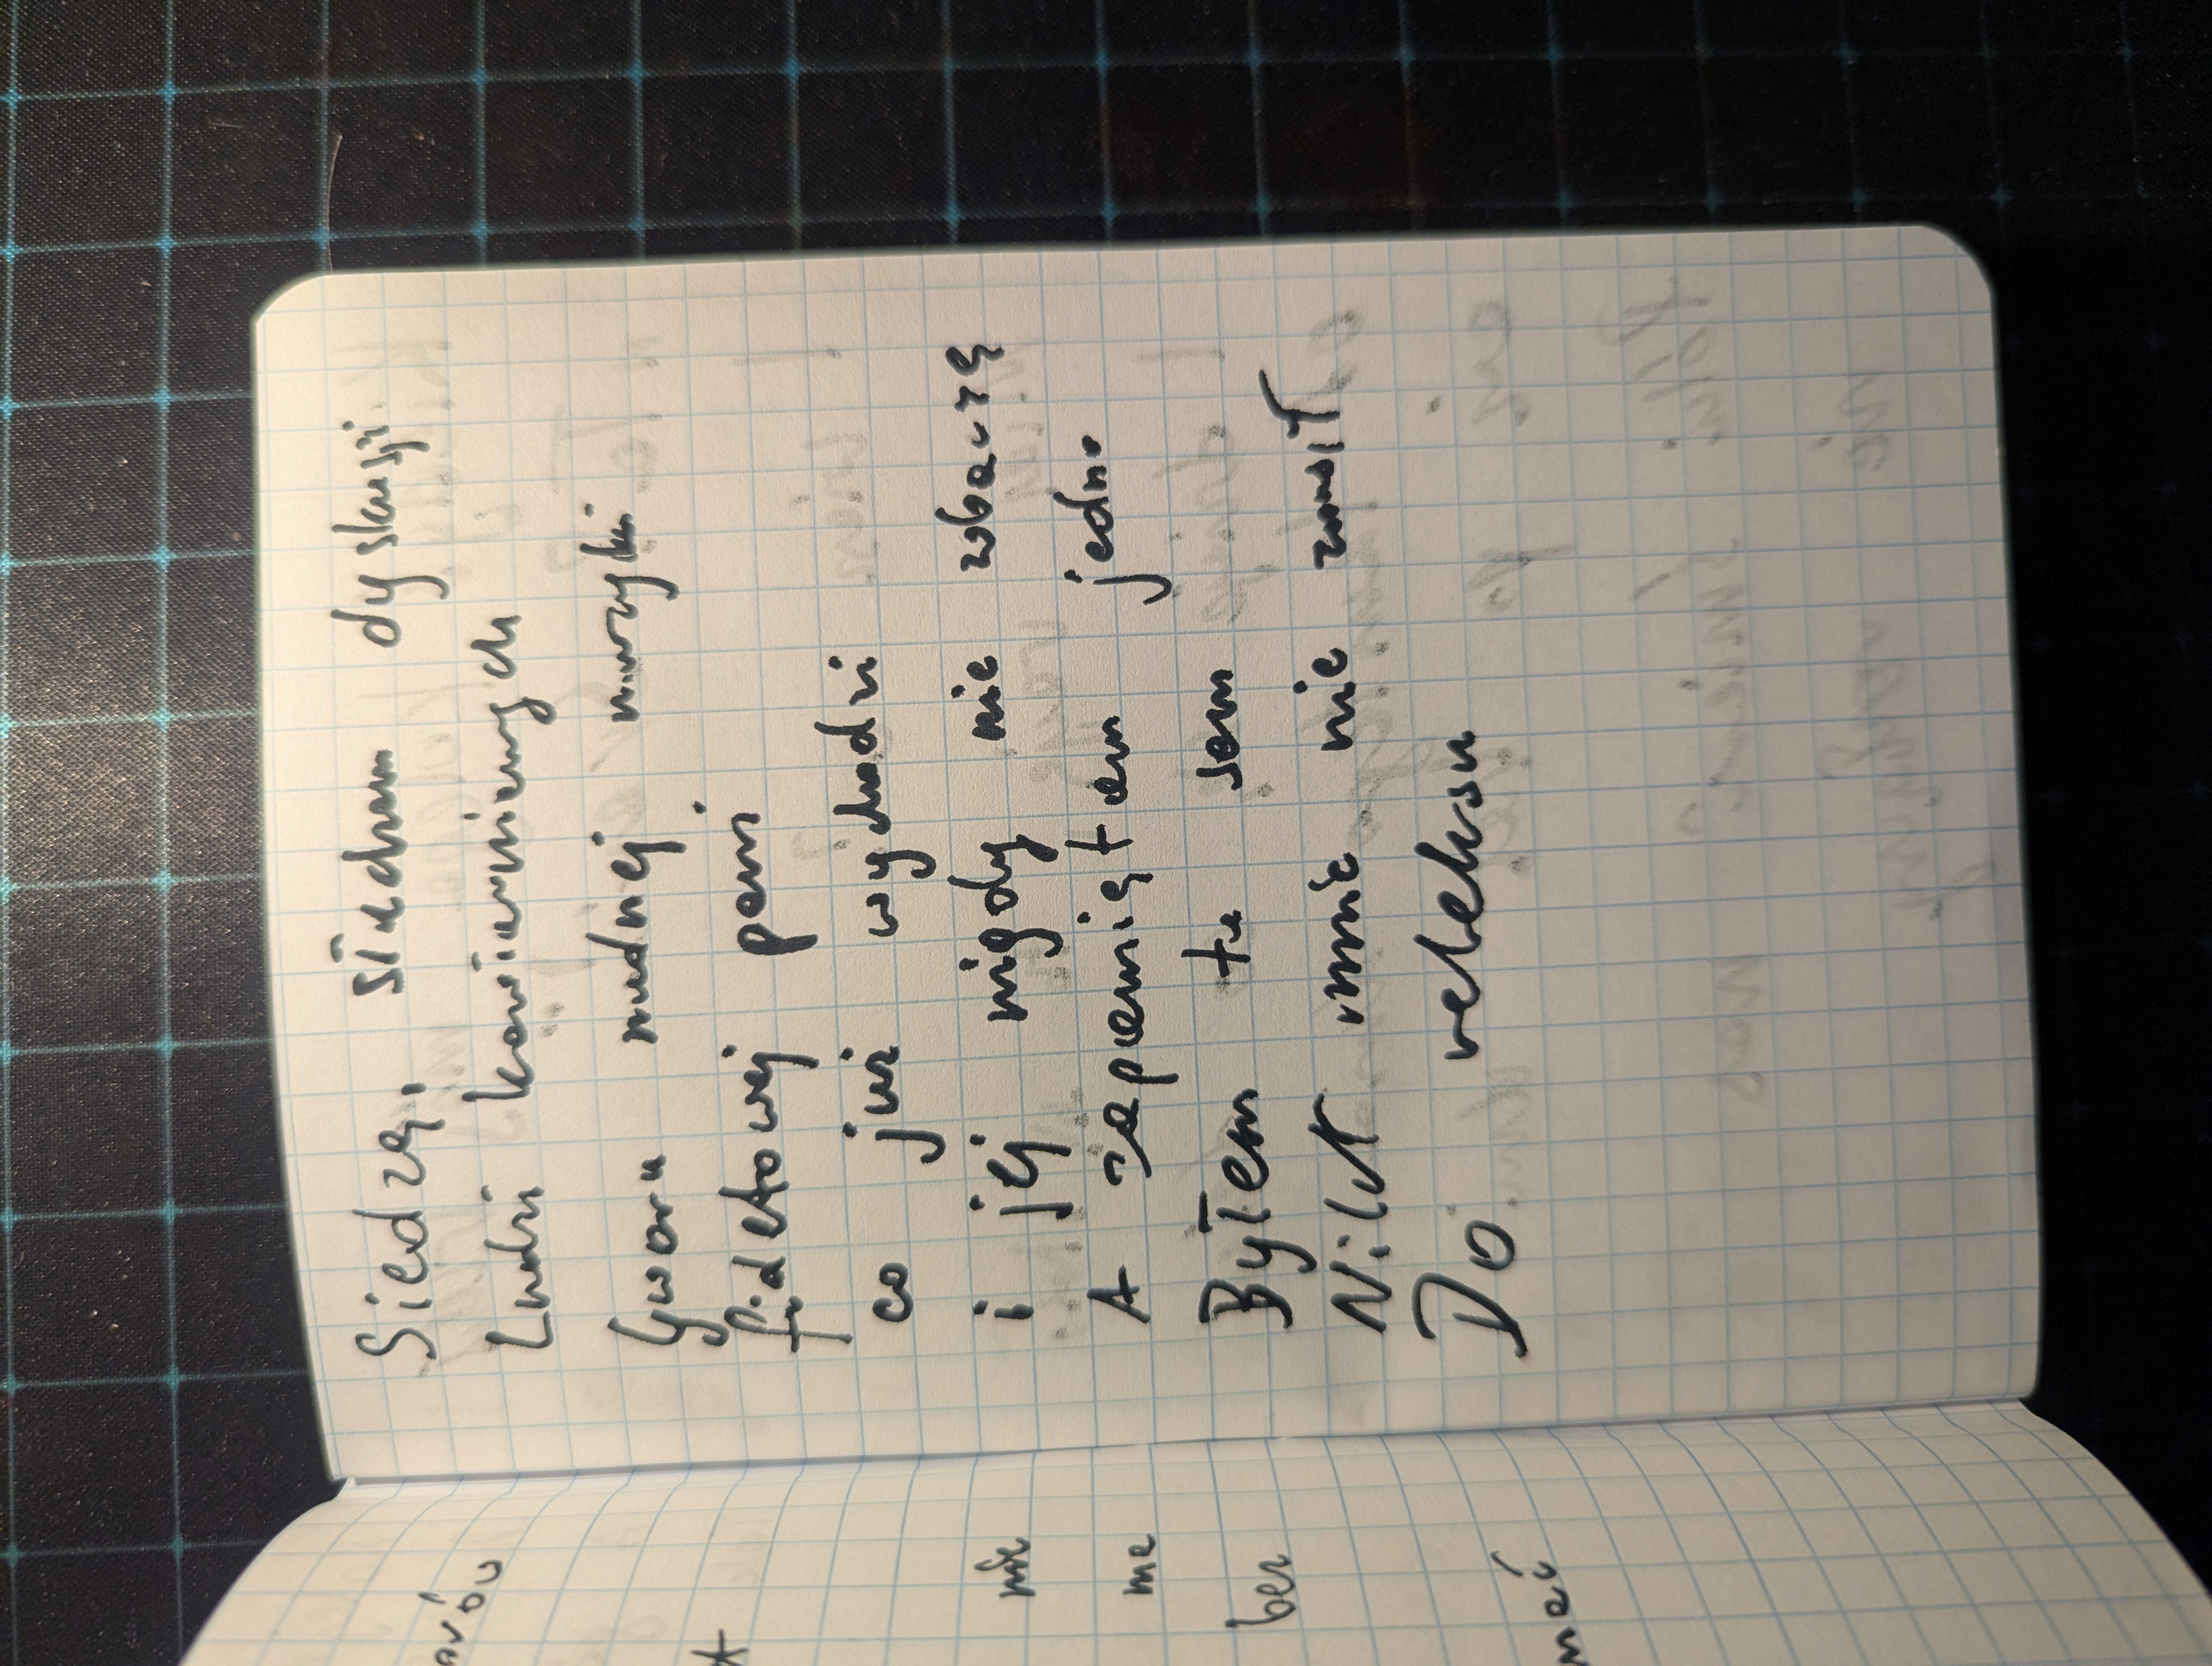 Siedzę, słucham dyskusji
Ludzi kawiarnianych
Gwaru nudnej muzyki
fioletowej pani
co już wychodzi
i jej nigdy nie zobaczę
A zapamiętam jedno
Byłem tu sam
Nikt mnie nie zmusił
Do relaksu
nie
me
bez